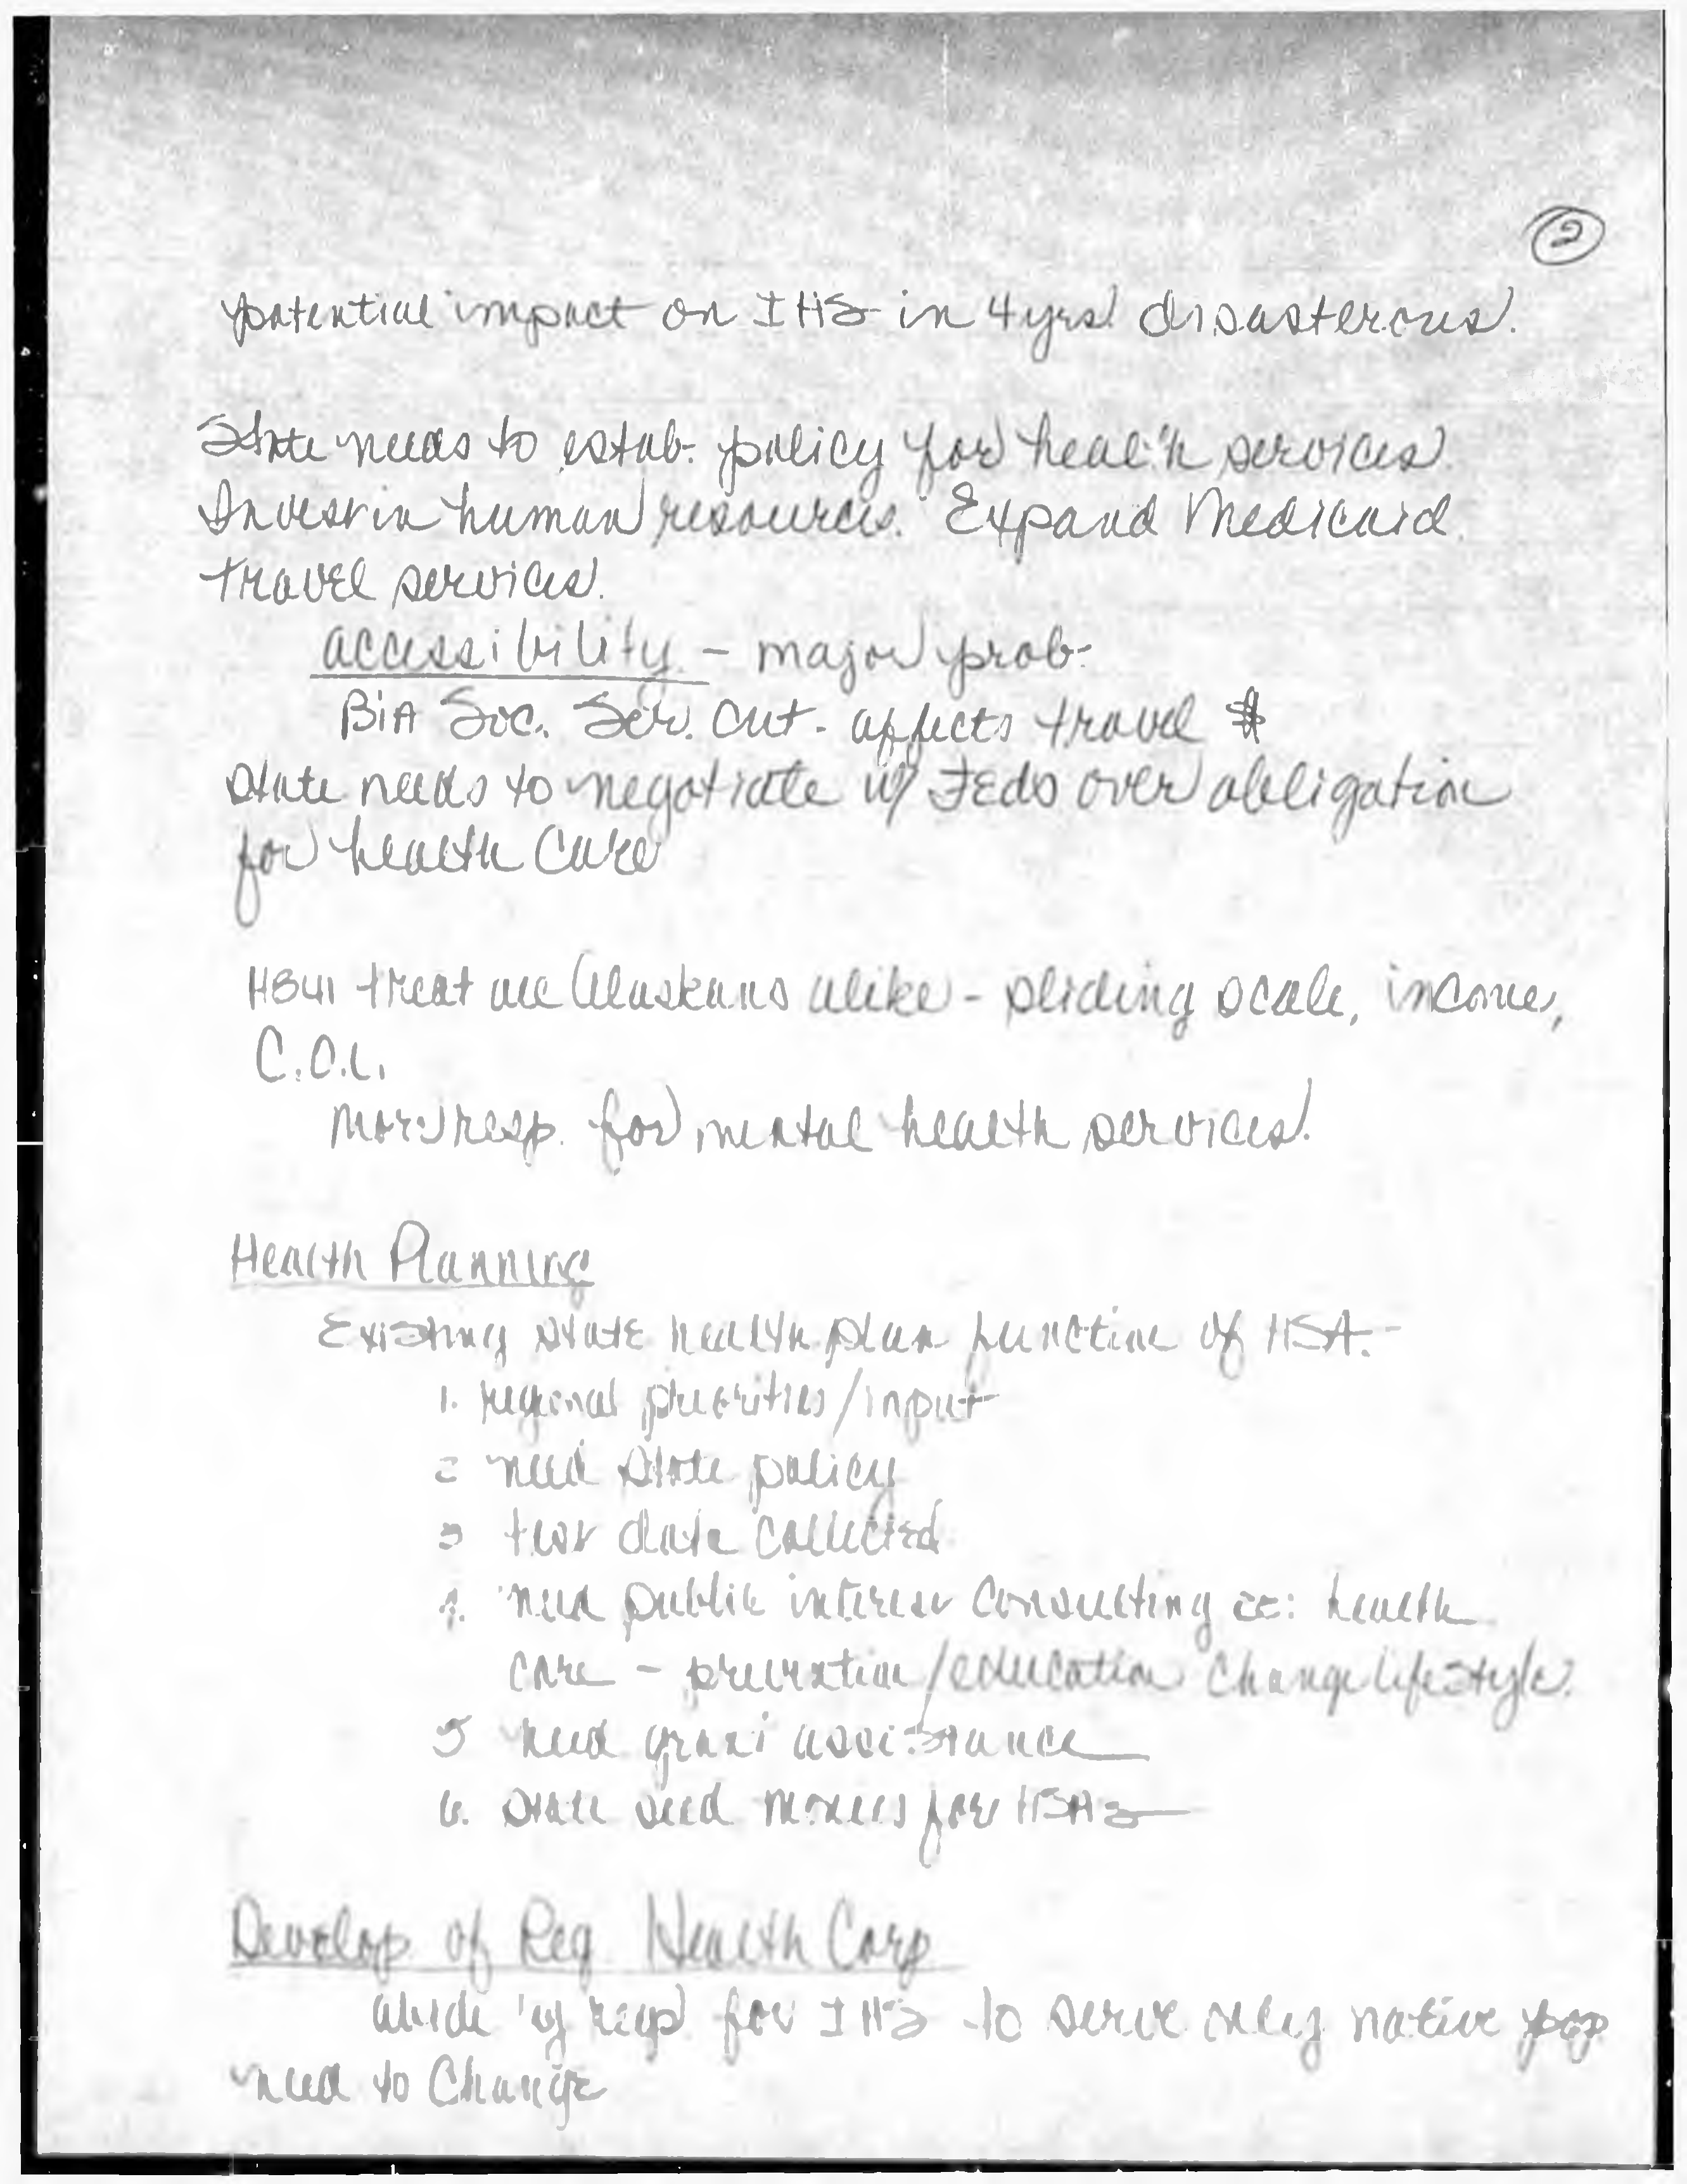 2
potential impact on IHS in 4 yrs disasterous.
State needs to estab. policy for health services.
Invest in human resources. Expand Medicaid
travel services.
accessibility - major prob-
BIA Soc. Ser. cut - affects travel $
State needs to negotiate w/ Feds over obligation
for health care
HB41 treat all Alaskans alike - sliding scale, income,
C.O.L.
more resp. for mental health services.
Health Planning
Existing state health plan function of HSA.-
1. regional priorities/input
2 need state policy
3 test data collected
4. need public interest consulting re: health
care - prevention/education change lifestyle.
5 need grant assistance
6. State seed monies for HSAs
Develop of Reg Health Corp
abide by for IHS to serve only native pop
need to change